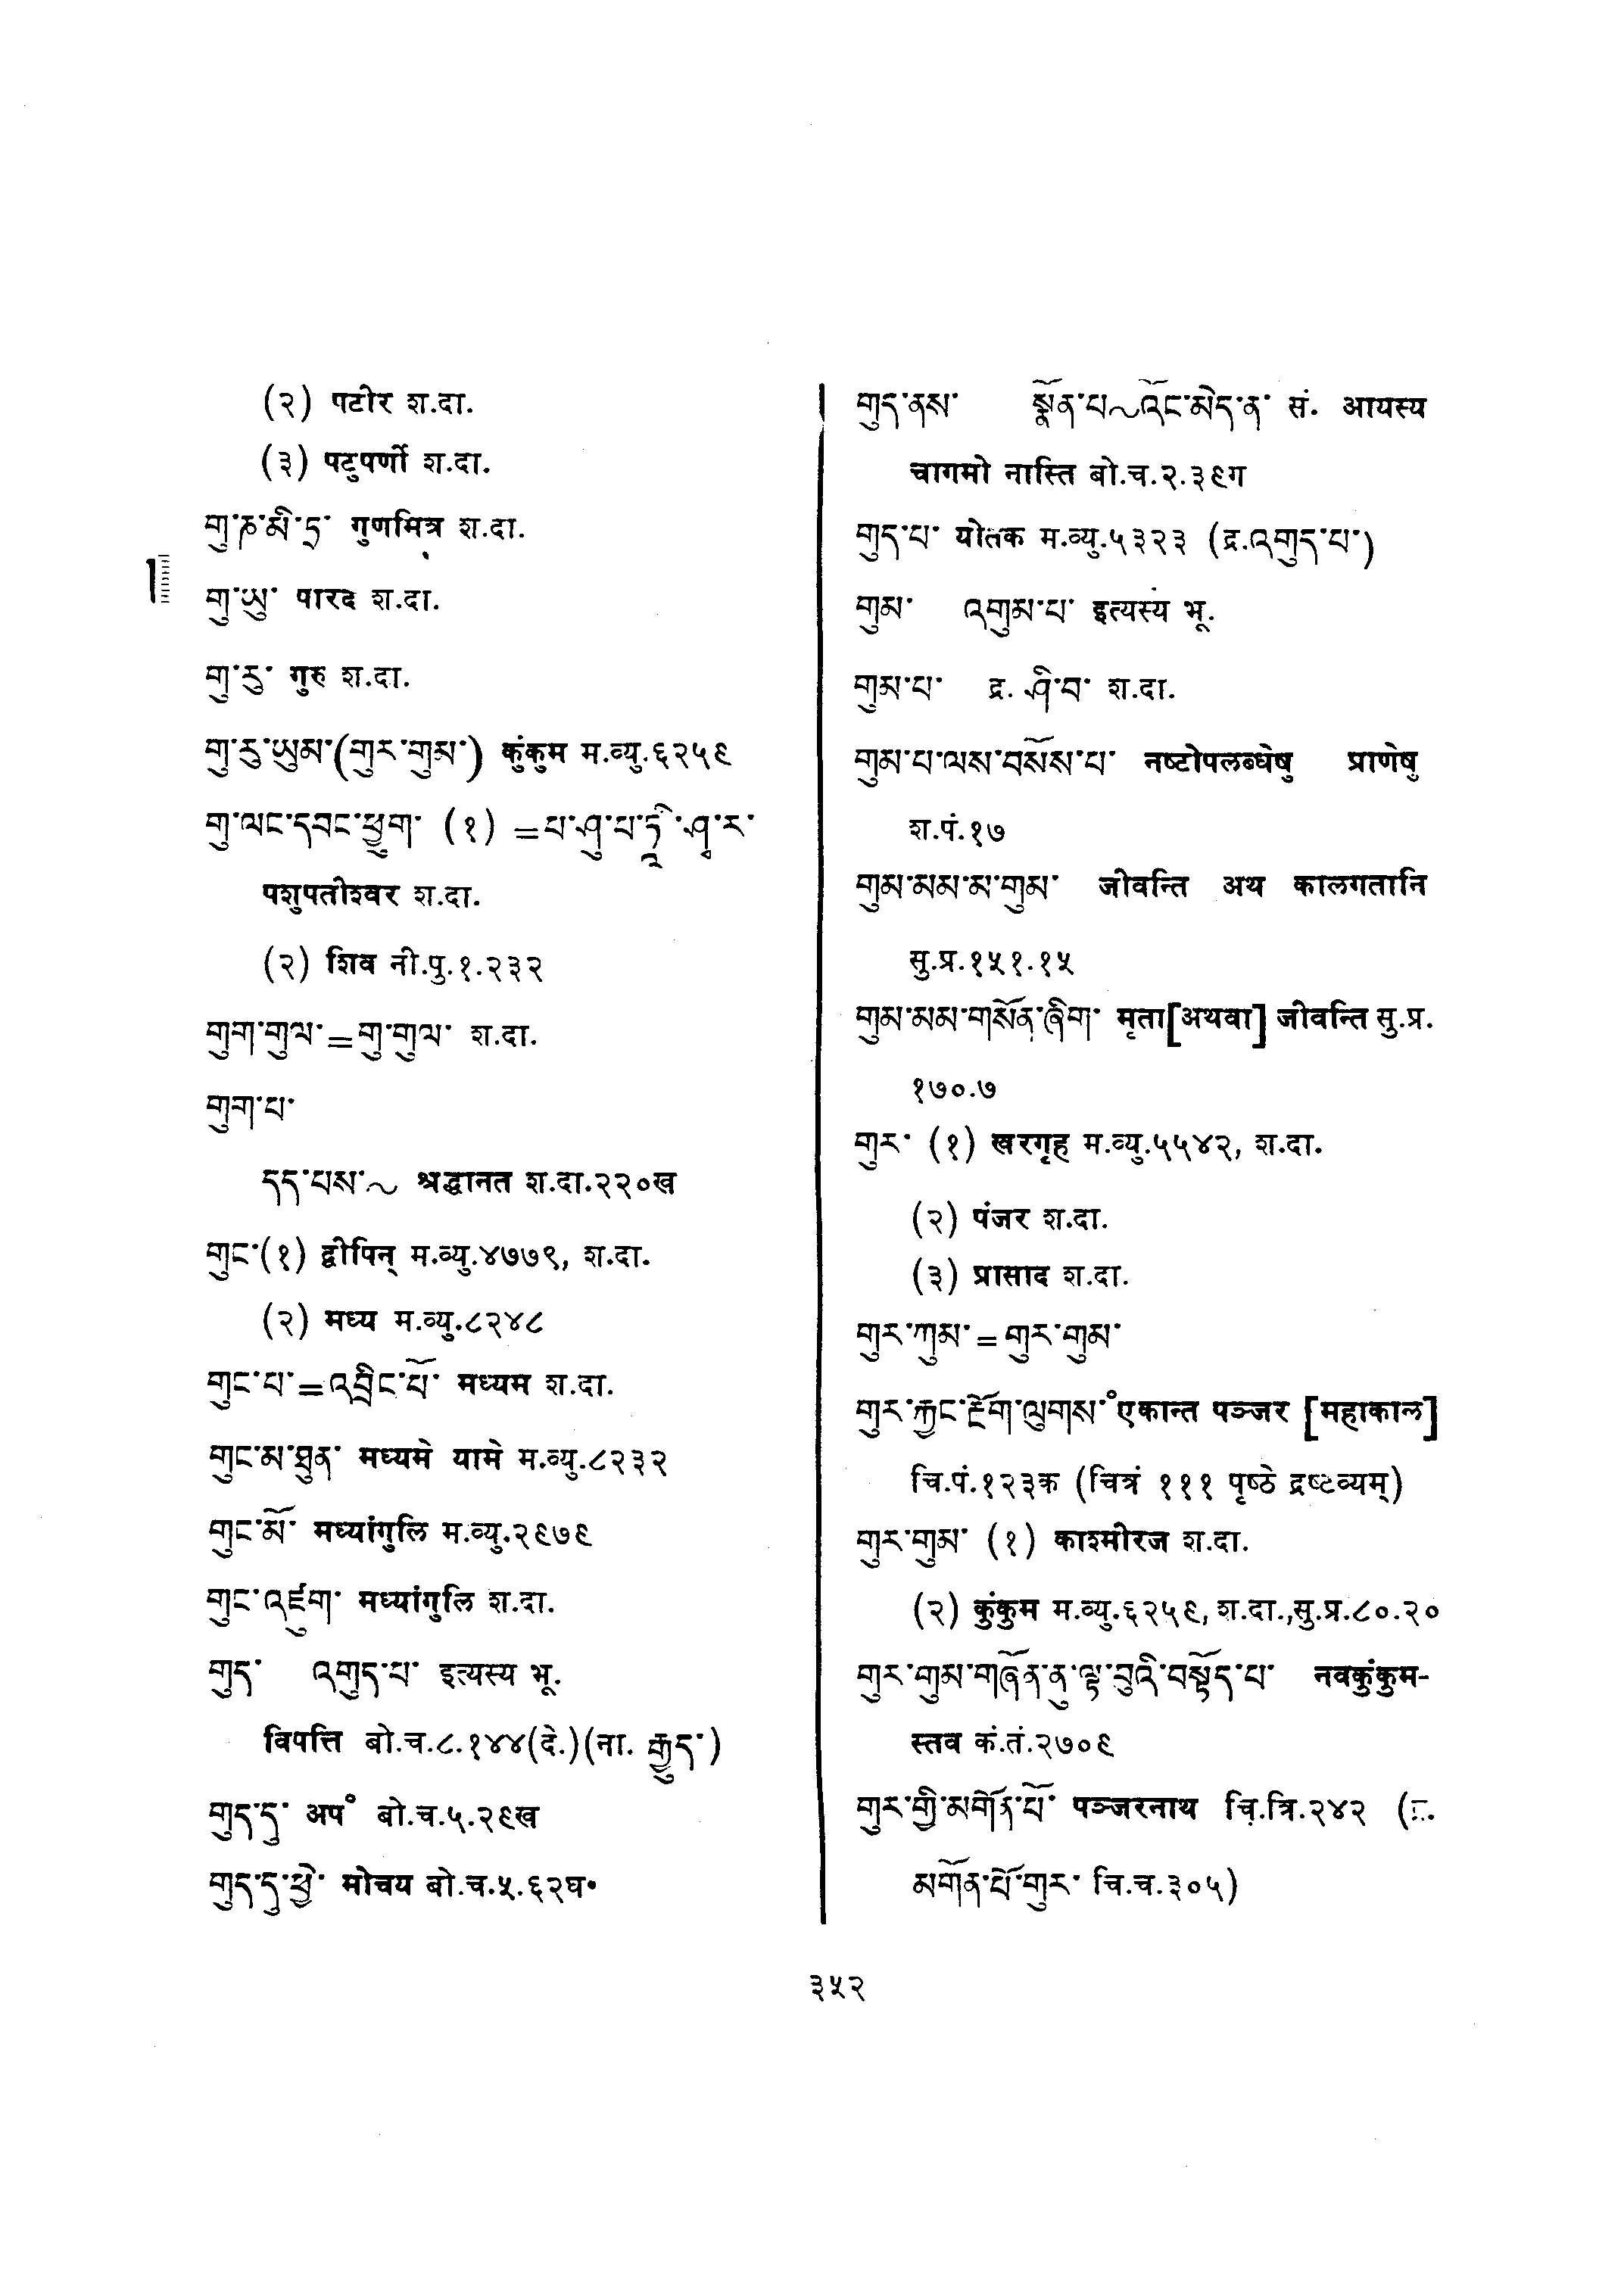 (२) पटीर श.दा.
(३) पटुपर्णी श.दा.
གུ་ཎ་མི་ཏྲ་ गुणमित्र श.दा.
གུ་ཡུ་ पारद श.दा.
གུ་རུ་ गुरु श.दा.
གུ་རུ་ཡུམ་(གུར་གུམ་) कुंकुम म.व्यु.६२५९
གུ་ལང་དབང་ཕྱུག་ (१) =པ་ཤུ་པ་ཏཱི་ཤྭ་ར་
पशुपतीश्वर श.दा.
(२) शिव नी.पु.१.२३२
གུག་གུལ་=གུ་གུལ་ श.दा.
གུག་པ་
དད་པས་~ श्रद्धानत श.दा.२२०ख
གུང་(१) द्वीपिन् म.व्यु.४७७९, श.दा.
(२) मध्य म.व्यु.८२४८
གུང་པ་=འབྲིང་པོ་ मध्यम श.दा.
གུང་མ་ཐུན་ मध्यमे यामे म.व्यु.८२३२
གུང་མོ་ मध्यांगुलि म.व्यु.२९७९
གུང་འཛུག་ मध्यांगुलि श.दा.
གུད་ འགུད་པ་ इत्यस्य भू.
विपत्ति बो.च.८.१४४(दे.)(ना. རྒྱུད་)
གུད་དུ་ अप॰ बो.च.५.२९ख
གུད་དུ་ཕྱེ་ मोचय बो.च.५.६२घ•
གུད་ནས་ སྣོན་པ~འོང་མེད་ན་ सं. आयस्य
चागमो नास्ति बो.च.२.३९ग
གུད་པ་ यौतक म.व्यु.५३२३ (द्र.འགུད་པ་)
གུམ་ འགུམ་པ་ इत्यस्य भू.
གུམ་པ་ द्र. ཤི་བ་ श.दा.
གུམ་པ་ལས་བསོས་པ་ नष्टोपलब्धेषु प्राणेषु
श.पं.१७
གུམ་མམ་མ་གུམ་ जीवन्ति अथ कालगतानि
सु.प्र.१५१.१५
གུམ་མམ་གསོན་ཞིག་ मृता[अथवा] जीवन्ति सु.प्र.
१७०.७
གུར་ (१) खरगृह म.व्यु.५५४२, श.दा.
(२) पंजर श.दा.
(३) प्रासाद श.दा.
གུར་ཀུམ་=གུར་གུམ་
གུར་རྐྱང་རྫོག་ལུགས་ एकान्त पञ्जर [महाकाल]
चि.पं.१२३क (चित्रं १११ पृष्ठे द्रष्टव्यम्)
གུར་གུམ་ (१) काश्मीरज श.दा.
(२) कुंकुम म.व्यु.६२५९, श.दा.,सु.प्र.८०.२०
གུར་གུམ་གཞོན་ནུ་ལྟ་བུའི་བསྟོད་པ་ नवकुंकुम-
स्तव कं.तं.२७०९
གུར་གྱི་མགོན་པོ་ पञ्जरनाथ चि.त्रि.२४२
མགོན་པོ་གུར་ चि.च.३०५)
३५२